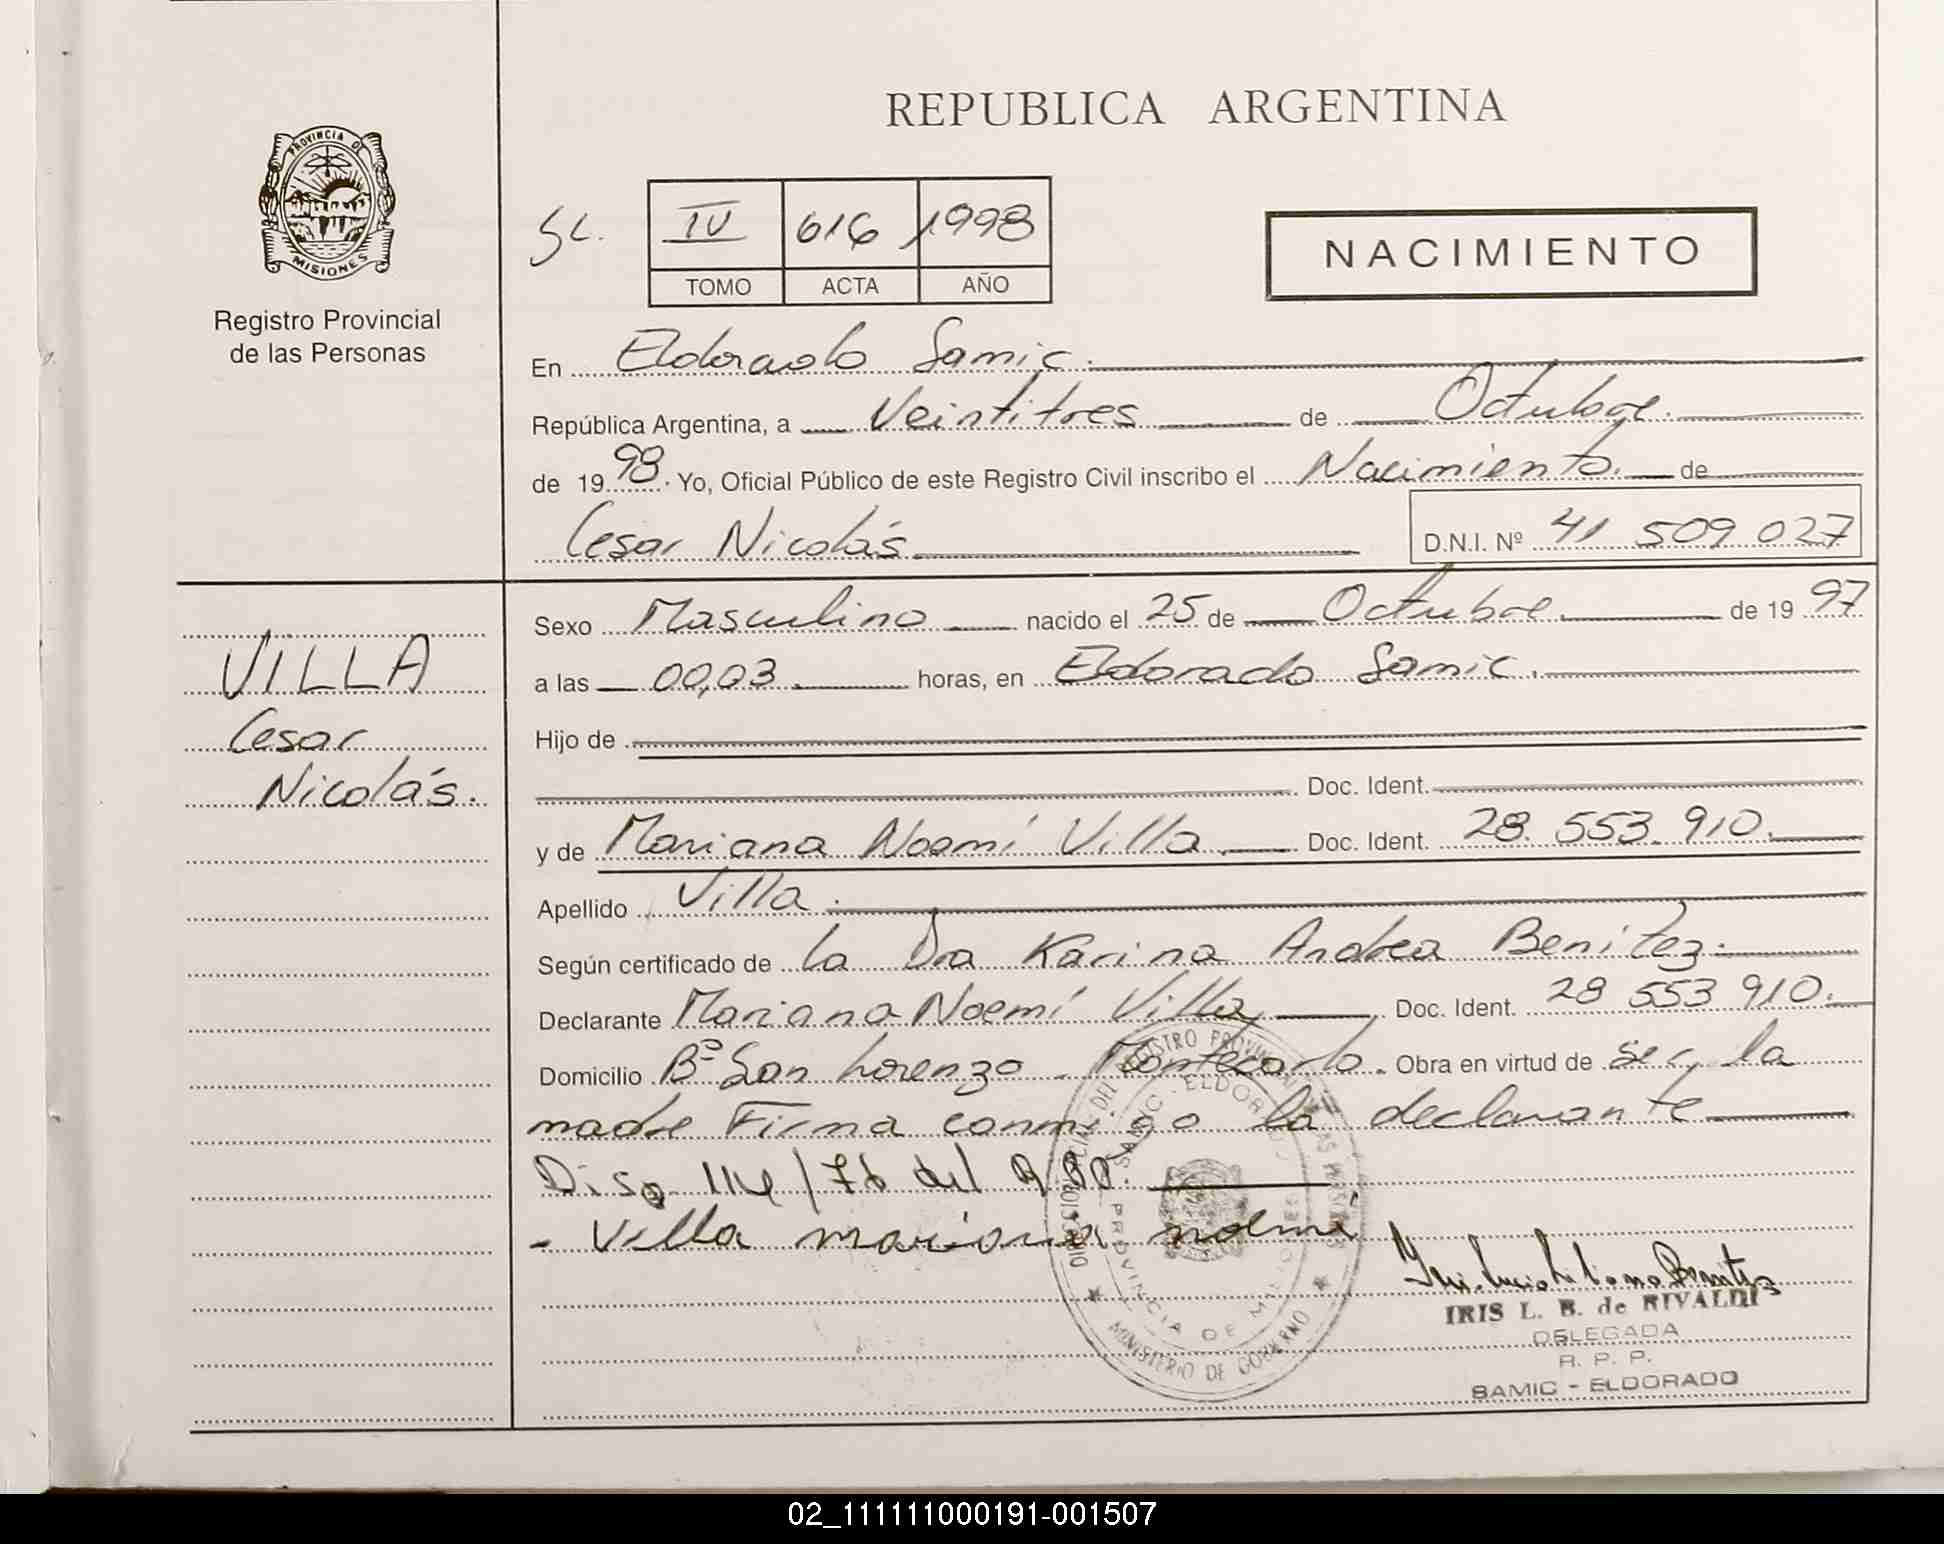 PROVINCIA DE
MISIONES
Registro Provincial
de las Personas
REPUBLICA ARGENTINA
SC.
IV 616 1998
TOMO ACTA AÑO
NACIMIENTO
En Eldorado Samic.
República Argentina, a Veintitres de Octubre.
de 1998. Yo, Oficial Público de este Registro Civil inscribo el Nacimiento. de
Cesar Nicolás
D.N.I. Nº 41 509 027
VILLA
Cesar
Nicolás.
Sexo Masculino nacido el 25 de Octubre. de 1997
a las 00,03. horas, en Eldorado Samic.
Hijo de
Doc. Ident.
y de Mariana Noemí Villa. Doc. Ident. 28.553.910.
Apellido Villa.
Según certificado de la Dra Karina Andrea Benitez.
Declarante Mariana Noemí Villa, Doc. Ident. 28 553 910.
Domicilio Bº San Lorenzo. Montecarlo. Obra en virtud de ser la
madre Firma conmigo la declarante
Disp 114/76 del R.P.P.
- Villa mariana noemi
IRIS L. B. de RIVALDI
DELEGADA
R. P. P.
SAMIC - ELDORADO
SAMIC - ELDORADO
PROVINCIA DE MISIONES
MINISTERIO DE GOBIERNO
02_111111000191-001507